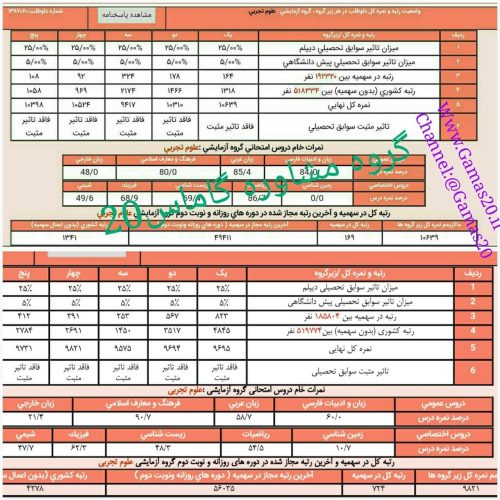 وضعیت رتبه و نمره کل داوطلب در هر زیر گروه ، گروه آزمایشی: علوم تجربی
مشاهده پاسخنامه
ردیف رتبه و نمره کل /زیرگروه یک دو سه چهار پنج
۱ میزان تاثیر سوابق تحصیلی دیپلم ۲۵/۰۰% ۲۵/۰۰% ۲۵/۰۰% ۲۵/۰۰% ۲۵/۰۰%
۲ میزان تاثیر سوابق تحصیلی پیش دانشگاهی ۵/۰۰% ۵/۰۰% ۵/۰۰% ۵/۰۰% ۵/۰۰%
۳ رتبه در سهمیه بین ۱۹۲۳۲۰ نفر ۱۶۴ ۱۷۸ ۳۲۴ ۹۲ ۱۰۸
۴ رتبه کشوری (بدون سهمیه) بین ۵۱۸۳۳۴ نفر ۱۳۱۸ ۱۴۶۶ ۲۱۷۴ ۹۶۹ ۱۰۵۸
۵ نمره کل نهایی ۱۰۶۳۹ ۱۰۳۱۰ ۹۴۱۷ ۱۰۵۲۴ ۱۰۳۹۸
تاثیر مثبت سوابق تحصیلی فاقد تاثیر مثبت فاقد تاثیر مثبت فاقد تاثیر مثبت فاقد تاثیر مثبت فاقد تاثیر مثبت
نمرات خام دروس امتحانی گروه آزمایشی :علوم تجربی
زبان و ادبیات فارسی زبان عربی فرهنگ و معارف اسلامی زبان خارجی
درصد نمره 84/0 85/4 80/0 48/0
دروس اختصاصی زیست شناسی فیزیک شیمی
درصد نمره 0/0 68/9 49/6
رتبه کل در سهمیه و آخرین رتبه مجاز شده در دوره های روزانه و نوبت دوم گروه آزمایشی علوم تجربی
ماکزیمم نمره کل زیر گروه ها رتبه کل در سهمیه
۱۰۶۳۹ ۱۶۹ ۴۹۴۱۱ ۱۳۴۱
گروه مشاوره گاماس20
Www.Gamas20.ir
Channel:@Gamas20
ردیف رتبه و نمره کل /زیرگروه یک دو سه چهار پنج
1 میزان تاثیر سوابق تحصیلی دیپلم ۲۵% ۲۵% ۲۵% ۲۵% ۲۵%
2 میزان تاثیر سوابق تحصیلی پیش دانشگاهی ۵% ۵% ۵% ۵% ۵%
3 رتبه در سهمیه بین ۱۸۵۸۰۴ نفر ۸۲۳ ۵۶۷ ۲۵۳ ۳۹۱ ۴۱۲
4 رتبه کشوری (بدون سهمیه) بین ۵۱۹۷۷۴ نفر ۴۸۴۵ ۳۵۱۷ ۱۶۹۱ ۲۶۵۰ ۲۷۸۴
5 نمره کل نهایی ۹۶۹۵ ۹۶۹۴ ۹۵۷۵ ۹۸۲۱ ۹۷۳۱
6 تاثیر مثبت سوابق تحصیلی فاقد تاثیر مثبت فاقد تاثیر مثبت فاقد تاثیر مثبت فاقد تاثیر مثبت فاقد تاثیر مثبت
نمرات خام دروس امتحانی گروه آزمایشی :علوم تجربی
دروس عمومی زبان و ادبیات فارسی زبان عربی فرهنگ و معارف اسلامی زبان خارجی
درصد نمره درس ۶۰/۰ ۵۸/۷ ۹۰/۷ ۲۱/۴
دروس اختصاصی زمین شناسی ریاضیات زیست شناسی فیزیک شیمی
درصد نمره درس ۱۰/۷ ۵۴/۵ ۴۸/۳ ۶۲/۳ ۴۷/۷
رتبه کل در سهمیه و آخرین رتبه مجاز شده در دوره های روزانه و نوبت دوم گروه آزمایشی علوم تجربی
نمره کل زیر گروه ها رتبه کل در سهمیه آخرین رتبه مجاز در سهمیه ( دوره های روزانه ونوبت دوم ) رتبه کشوری (بدون اعمال سهمیه)
۹۸۲۱ ۷۲۴ ۵۶۰۳۵ ۴۲۷۸